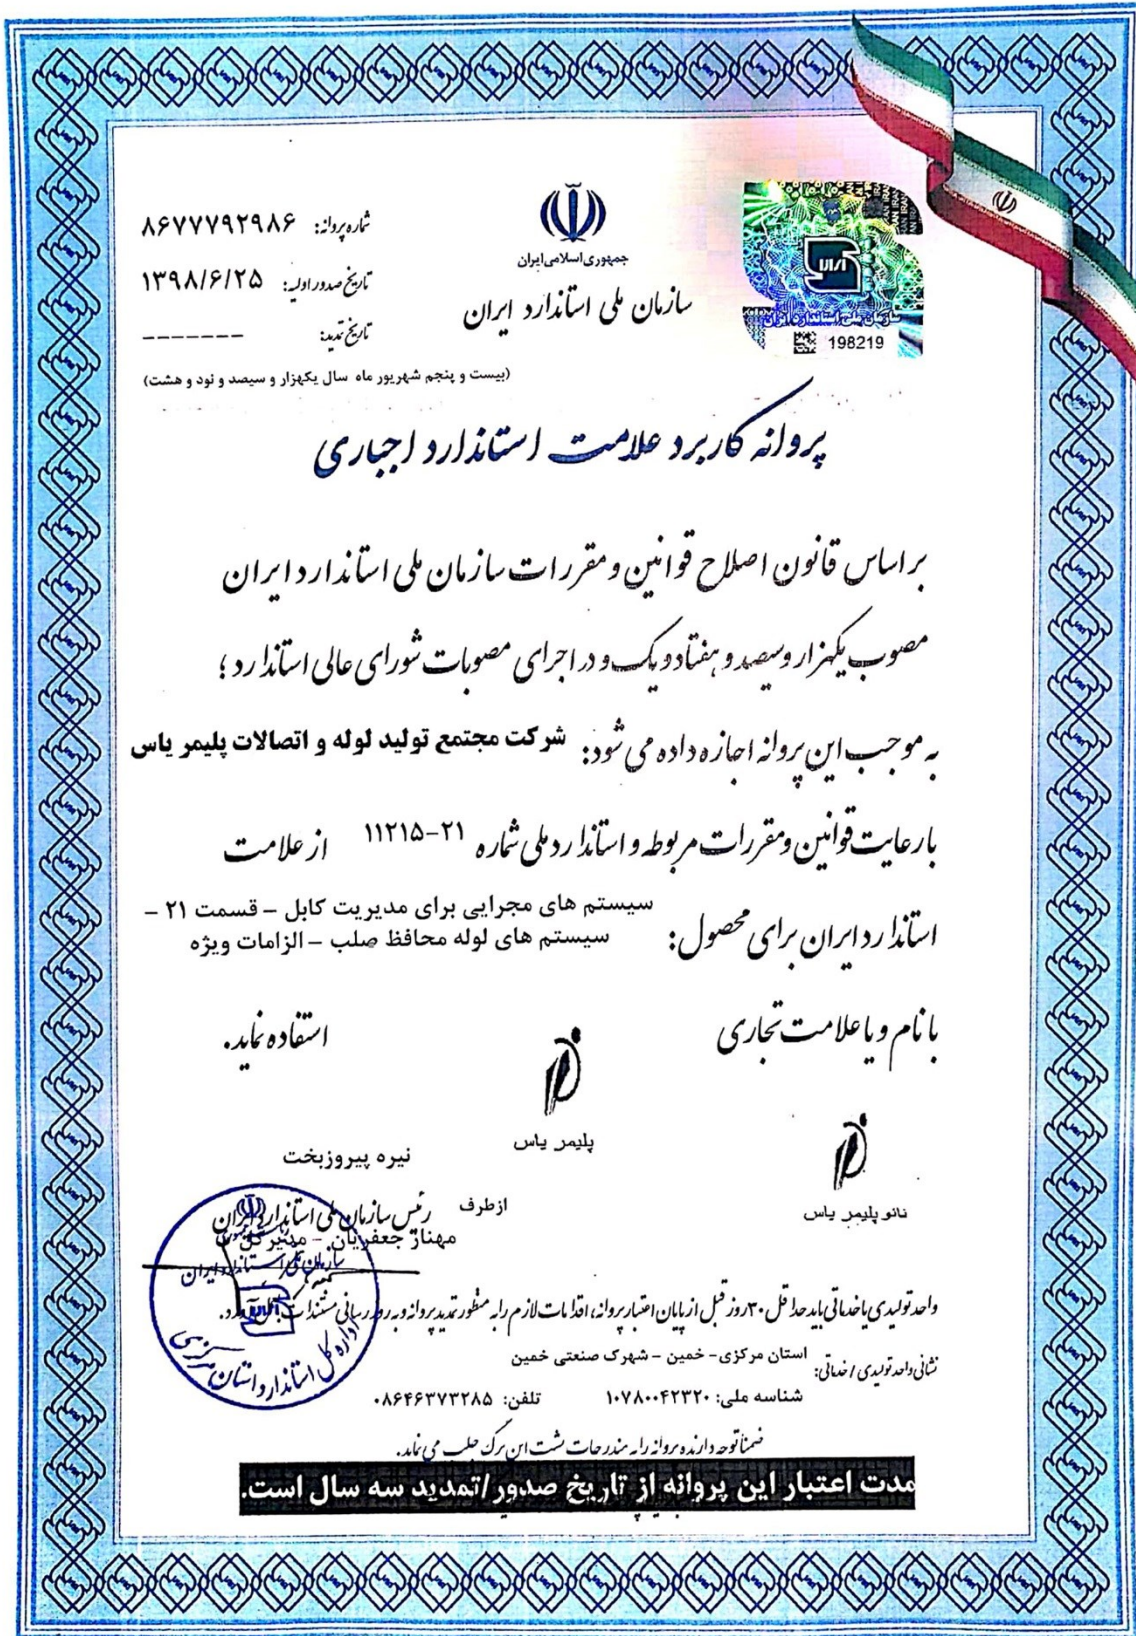 شماره پروانه: ۸۶۷۷۷۹۲۹۸۶
تاریخ صدور اولیه: ۱۳۹۸/۶/۲۵
تاریخ تمدید: -------
(بیست و پنجم شهریور ماه سال یکهزار و سیصد و نود و هشت)
جمهوری اسلامی ایران
سازمان ملی استاندارد ایران
سازمان ملی استاندارد ایران
198219
پروانه کاربرد علامت استاندارد اجباری
بر اساس قانون اصلاح قوانین و مقررات سازمان ملی استاندارد ایران
مصوب یکهزار و سیصد و هفتاد و یک و در اجرای مصوبات شورای عالی استاندارد ؛
به موجب این پروانه اجازه داده می شود: شرکت مجتمع تولید لوله و اتصالات پلیمر یاس
با رعایت قوانین و مقررات مربوطه و استاندارد ملی شماره ۲۱-۱۱۲۱۵ از علامت
استاندارد ایران برای محصول: سیستم های مجرایی برای مدیریت کابل – قسمت ۲۱ –
سیستم های لوله محافظ صلب – الزامات ویژه
با نام و یا علامت تجاری استفاده نماید.
پلیمر یاس
نانو پلیمر یاس
نیره پیروزبخت
رئیس سازمان ملی استاندارد ایران
از طرف
مهناز جعفریان - مدیر کل
سازمان ملی استاندارد ایران
اداره کل استاندارد استان مرکزی
واحد تولیدی یا خدماتی باید حداقل ۳۰ روز قبل از پایان اعتبار پروانه، اقدامات لازم را به منظور تمدید پروانه و به روز رسانی مستندات
نشانی واحد تولیدی / خدماتی: استان مرکزی- خمین – شهرک صنعتی خمین
شناسه ملی: ۱۰۷۸۰۰۴۲۳۲۰ تلفن: ۰۸۶۴۶۳۷۳۲۸۵
ضمناً توجه دارنده پروانه را به مندرجات پشت این برگ جلب می نماید.
مدت اعتبار این پروانه از تاریخ صدور/تمدید سه سال است.